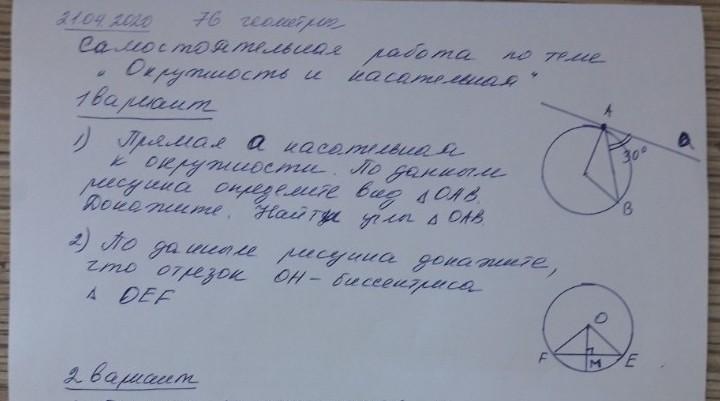 21.04.2020 7б геометрия
Самостоятельная работа по теме
„Окружность и касательная“
1 вариант
1) Прямая а касательная
к окружности. По данным
рисунка определите вид △ОАВ.
Докажите. Найти углы △ОАВ.
A
a
30°
B
2) По данным рисунка докажите,
что отрезок ОН – биссектриса
△ OEF
O
F
M
E
2 вариант